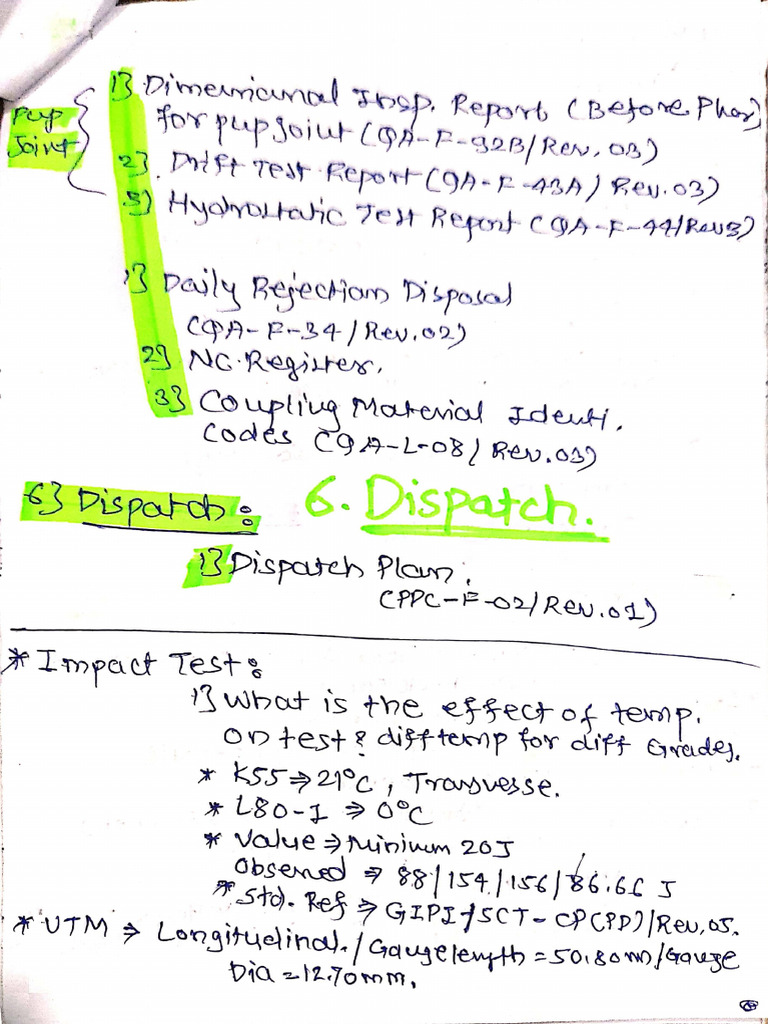 Pup
Joint
1} Dimensional Insp. Report (Before Phos)
for pup joint (QA-F-92B/Rev. 03)
2} Drift Test Report (QA-F-43A/Rev.03)
3) Hydrostatic Test Report (QA-F-44/Rev3)
1} Daily Rejection Disposal
(QA-F-34/Rev.02)
2} NC.Register.
3} Coupling Material Identi.
Codes (QA-L-08/Rev.03)
6} Dispatch: 6. Dispatch.
1} Dispatch Plan.
(PPC-F-02/Rev.01)
* Impact Test:
1} What is the effect of temp.
on test & diff temp for diff Grades.
* K55 ⇒ 21°C, Transvesse.
* L80-1 ⇒ 0°C
* Value ⇒ Minimum 20J
Observed ⇒ 88/154/156/86.66 J
* Std. Ref ⇒ GIPI/SCT-CP(PD)/Rev.05.
* UTM ⇒ Longitudinal./Gaugelength = 50.80m/Gauge
Dia = 12.70mm.